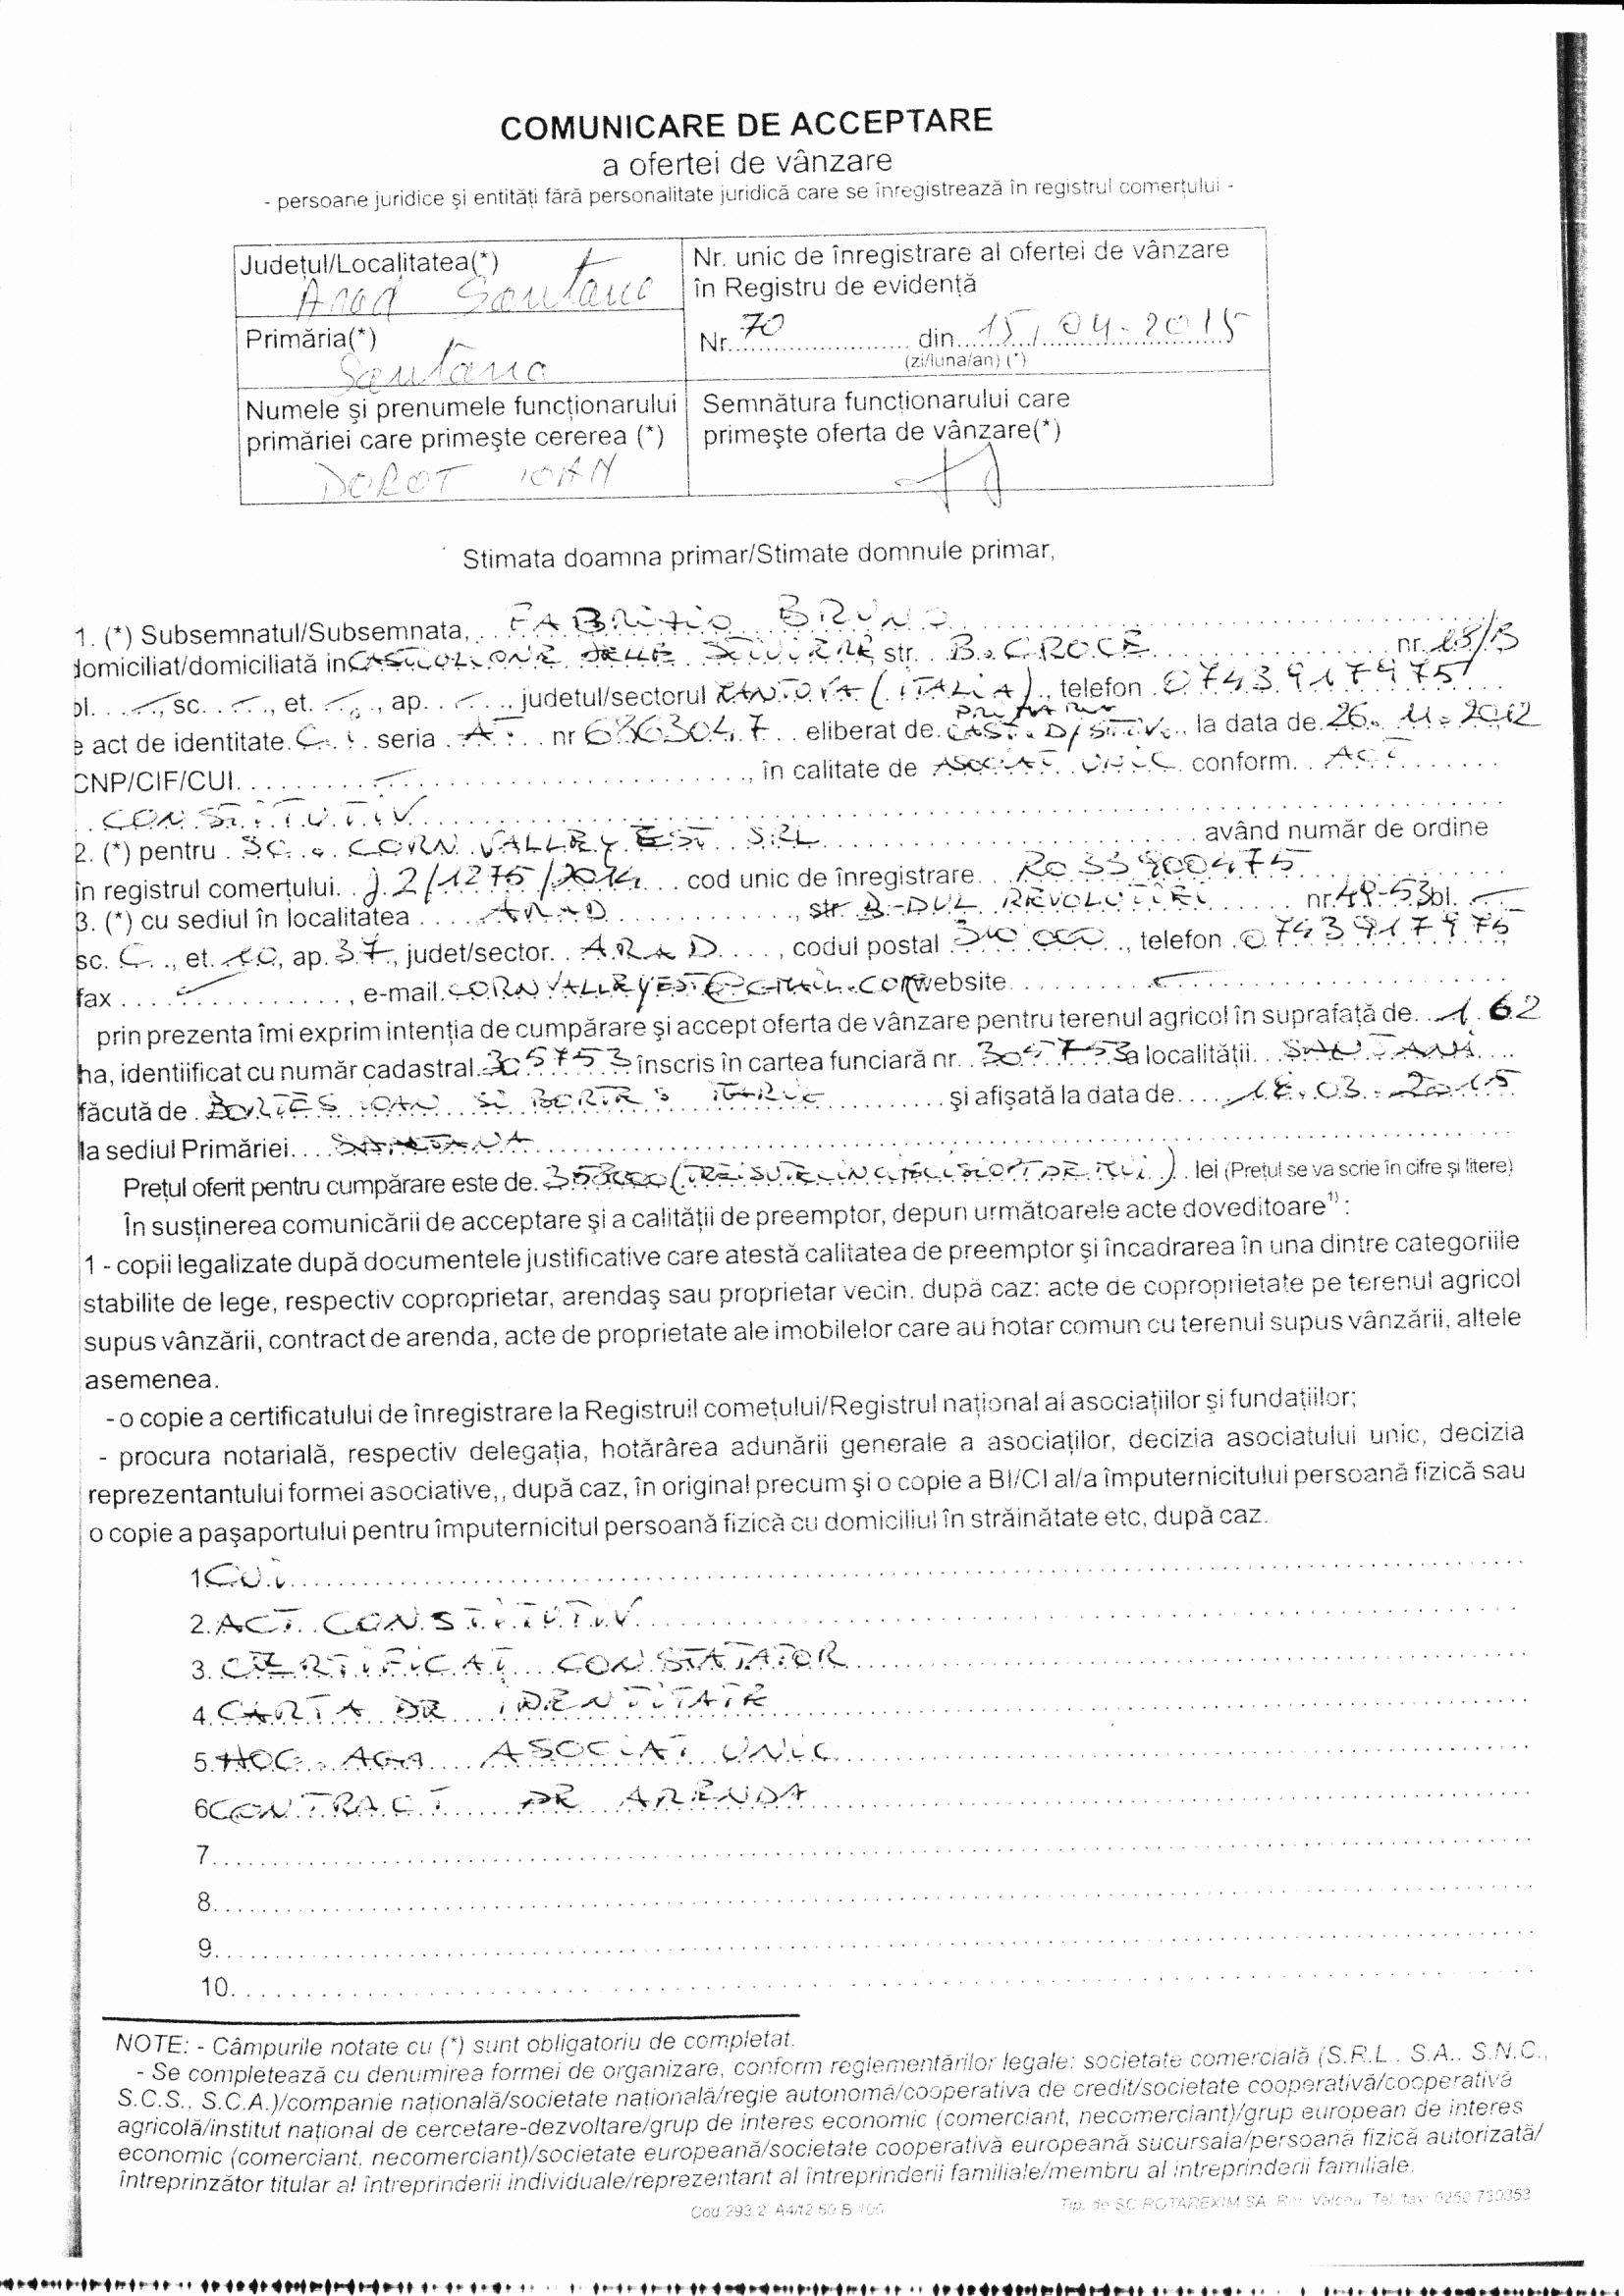 COMUNICARE DE ACCEPTARE
a ofertei de vânzare
- persoane juridice şi entităţi fără personalitate juridică care se înregistrează în registrul comerţului -
Judeţul/Localitatea(*)
Arad Santana
Nr. unic de înregistrare al ofertei de vânzare
în Registru de evidenţă
Nr. 70 din 15/04-2015
(zi/luna/an) (*)
Primăria(*)
Santana
Numele şi prenumele funcţionarului
primăriei care primeşte cererea (*)
DOROT IOAN
Semnătura funcţionarului care
primeşte oferta de vânzare(*)
Stimata doamna primar/Stimate domnule primar,
1. (*) Subsemnatul/Subsemnata, FABRIZIO BRUNO
domiciliat/domiciliată in CASTIGLIONE DELLE STIVIERE, str. B. CROCE nr. 18/B
bl. -, sc. -, et. -, ap. -, judetul/sectorul MANTOVA (ITALIA), telefon 0743917975
e act de identitate C.I. seria AT nr 6863047 eliberat de PRIMARIA CAST. D/STIV., la data de 26.11.2012
CNP/CIF/CUI - , în calitate de ASOCIAT UNIC conform ACT
CONSTITUTIV
2. (*) pentru SC. CORN VALLEY EST SRL având număr de ordine
în registrul comerţului J2/1275/2014 cod unic de înregistrare RO 33900475
3. (*) cu sediul în localitatea ARAD, str. B-DUL REVOLUTIEI nr. 49-53 bl. -
sc. C, et. 10, ap. 37, judet/sector ARAD, codul postal 310000, telefon 0743917975
fax - , e-mail CORNVALLEYEST@GMAIL.COM website -
prin prezenta îmi exprim intenţia de cumpărare şi accept oferta de vânzare pentru terenul agricol în suprafaţă de 1.62
ha, identiificat cu număr cadastral 305753 înscris în cartea funciară nr. 305753 a localităţii SANTANA
făcută de BORTES IOAN SI şi afişată la data de 18.03.2015
la sediul Primăriei SANTANA
Preţul oferit pentru cumpărare este de 358000 lei (Preţul se va scrie în cifre şi litere)
În susţinerea comunicării de acceptare şi a calităţii de preemptor, depun următoarele acte doveditoare¹⁾ :
1 - copii legalizate după documentele justificative care atestă calitatea de preemptor şi încadrarea în una dintre categoriile
stabilite de lege, respectiv coproprietar, arendaş sau proprietar vecin, după caz: acte de coproprietate pe terenul agricol
supus vânzării, contract de arenda, acte de proprietate ale imobilelor care au hotar comun cu terenul supus vânzării, altele
asemenea.
- o copie a certificatului de înregistrare la Registruil comeţului/Registrul naţional al asociaţiilor şi fundaţiilor;
- procura notarială, respectiv delegaţia, hotărârea adunării generale a asociaţilor, decizia asociatului unic, decizia
reprezentantului formei asociative,, după caz, în original precum şi o copie a BI/CI al/a împuternicitului persoană fizică sau
o copie a paşaportului pentru împuternicitul persoană fizică cu domiciliul în străinătate etc, după caz.
1. CUI
2. ACT CONSTITUTIV
3. CERTIFICAT CONSTATATOR
4. CARTA DE IDENTITATE
5. HOC. AGA ASOCIAT UNIC
6. CONTRACT DE ARENDA
7.
8.
9.
10.
NOTE: - Câmpurile notate cu (*) sunt obligatoriu de completat.
- Se completează cu denumirea formei de organizare, conform reglementărilor legale: societate comercială (S.R.L., S.A., S.N.C.,
S.C.S., S.C.A.)/companie naţională/societate naţională/regie autonomă/cooperativa de credit/societate cooperativă/cooperativă
agricolă/institut naţional de cercetare-dezvoltare/grup de interes economic (comerciant, necomerciant)/grup european de interes
economic (comerciant, necomerciant)/societate europeană/societate cooperativă europeană sucursala/persoană fizică autorizată/
întreprinzător titular al întreprinderii individuale/reprezentant al întreprinderii familiale/membru al întreprinderii familiale.
Cod 293.2 A4/t2
Tip. de SC ROTAREXIM SA. Rm. Vâlcea. Tel./fax: 0250 730353